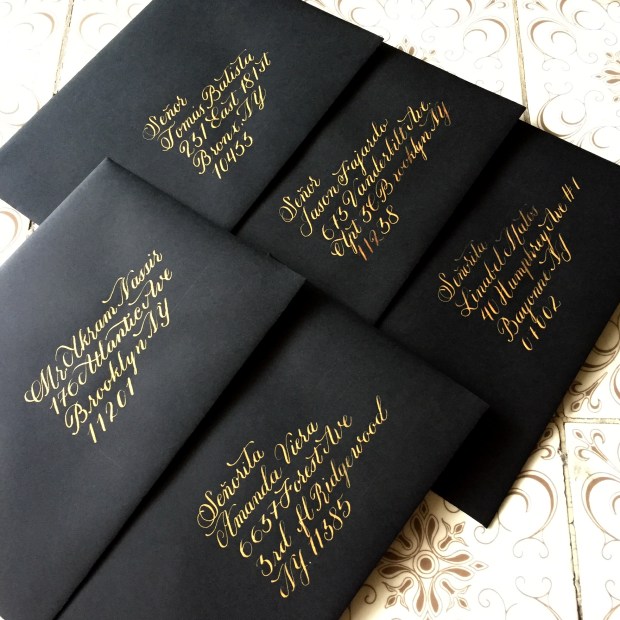 Señor
Tomas Batista
231 East 181 st
Bronx, NY
10453
Señor
Jason Fajardo
673 Vanderbilt Ave.
Apt 3C Brooklyn, NY
11238
Señorita
Linabel Matos
40 Humphrey Ave #1
Bayonne NJ
07002
Mr Akram Nassir
176 Atlantic Ave
Brooklyn NY
11201
Señorita
Amanda Viera
6637 Forest Ave
3rd fl Ridgewood
NY, 11385